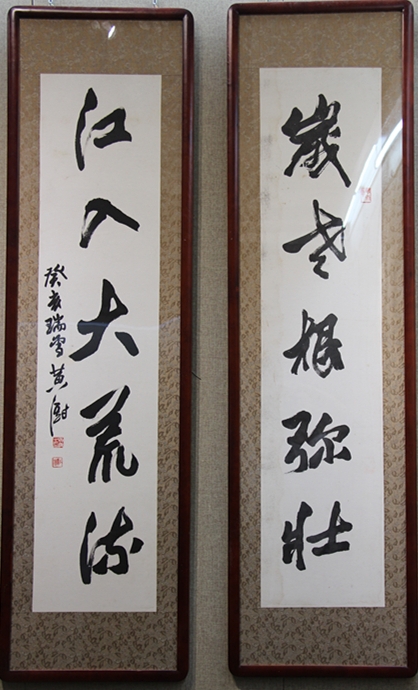 歲老根弥壯
江入大荒流
癸亥瑞雪黄澍